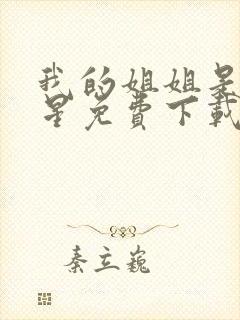 我的姐姐是
星免费下载
秦立巍